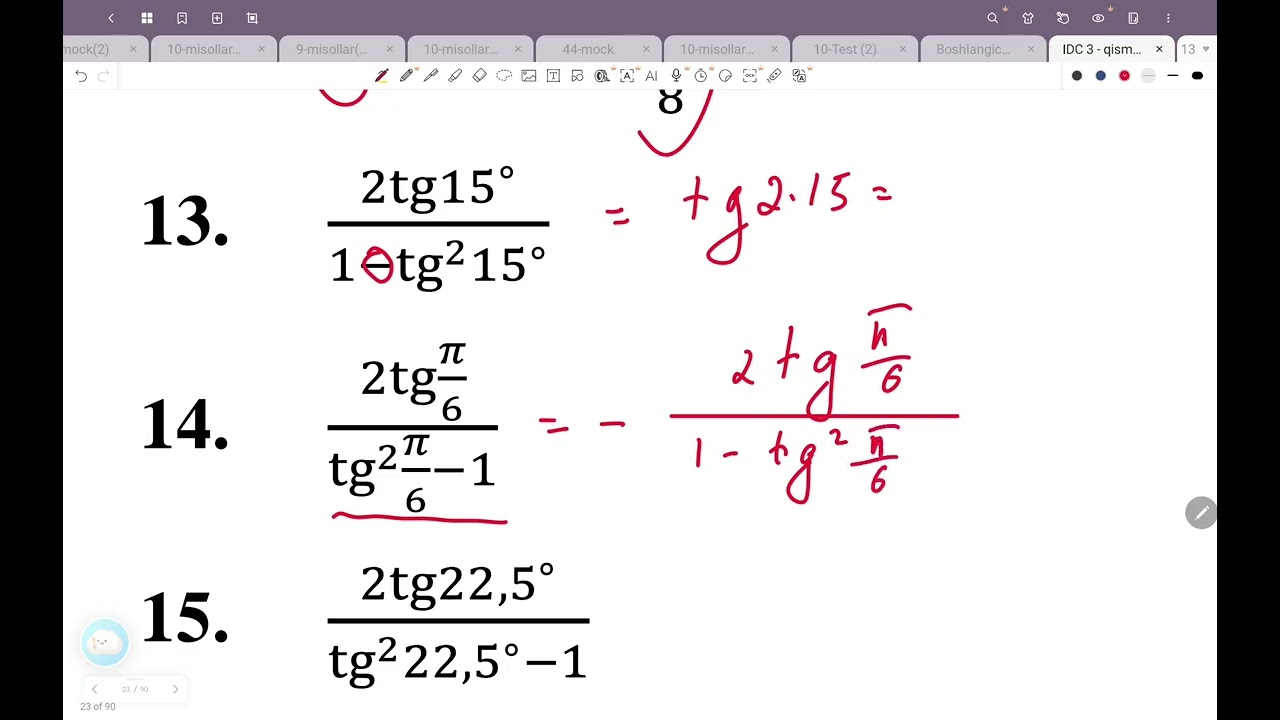 mock(2) × 10-misollar... × 9-misollar(... × 10-misollar... × 44-mock × 10-misollar... × 10-Test (2) × Boshlangic... × IDC 3 - qism... × 13
8
13. 2tg15° / 1−tg²15° = tg2·15 =
14. 2tg π/6 / tg² π/6 −1 = − 2tg π/6 / 1 - tg² π/6
15. 2tg22,5° / tg²22,5°−1
23 / 90
23 of 90